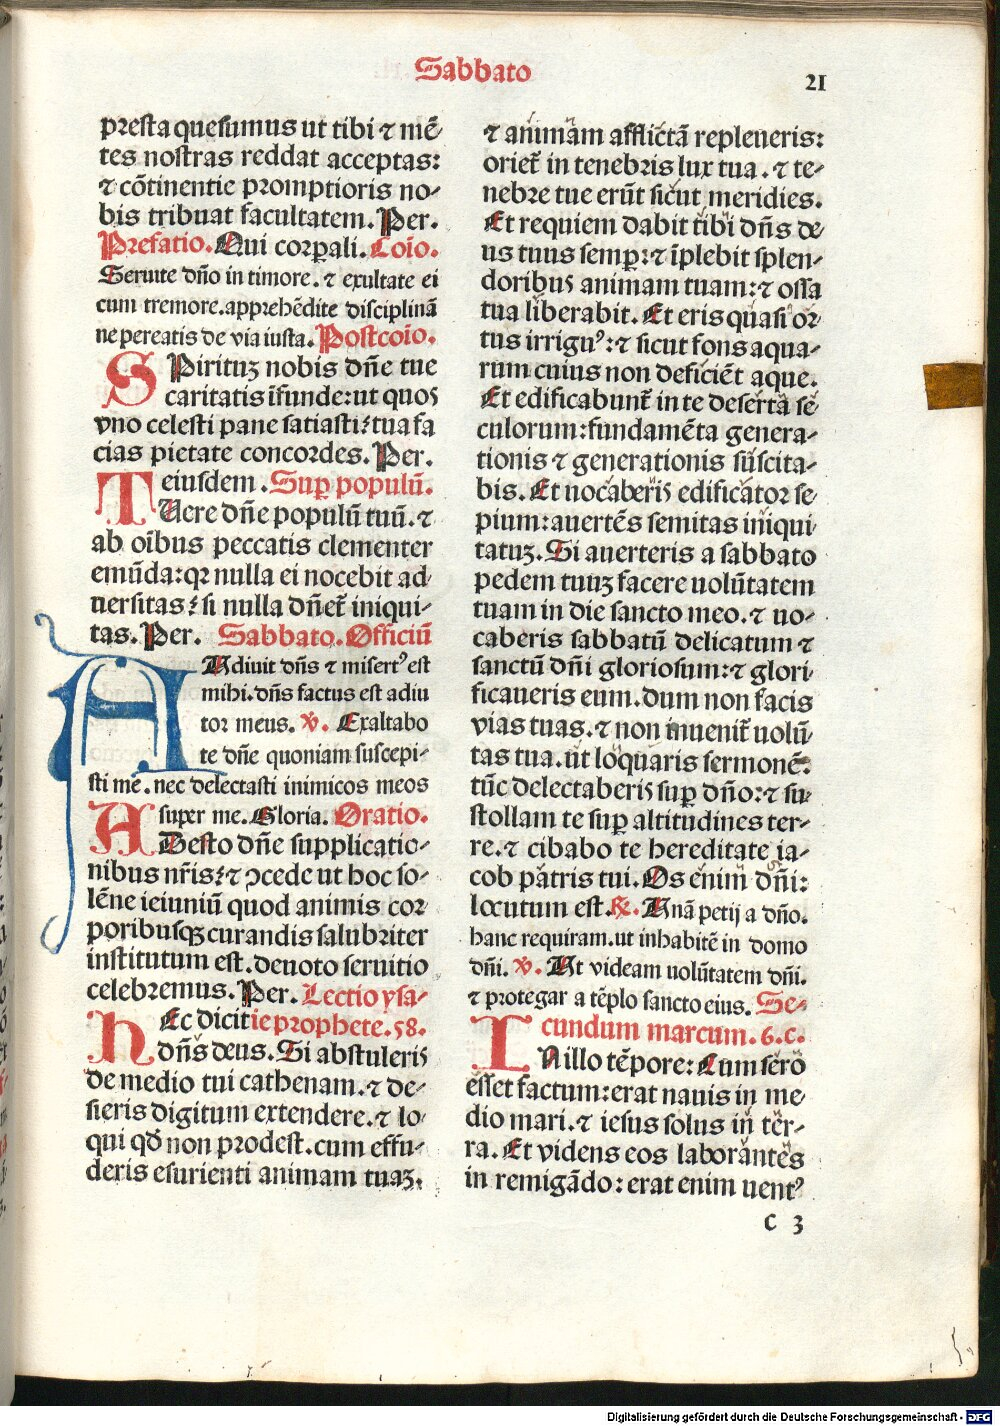 Sabbato
21
presta quesumus ut tibi ⁊ mē
tes nostras reddat acceptas:
⁊ cōtinentie promptioris no-
bis tribuat facultatem. Per.
Prefatio. Qui corꝑali. Coīo.
Seruite dño in timore. ⁊ exultate ei
cum tremore. apprehēdite disciplinā
ne pereatis de via iusta. Postcoīo.
SPirituꝫ nobis dñe tue
caritatis īfunde: ut quos
vno celesti pane satiasti: tua fa
cias pietate concordes. Per.
eiusdem. Suꝑ populū.
TUere dñe populū tuū. ⁊
ab oībus peccatis clementer
emūda: qꝛ nulla ei nocebit ad-
uersitas: si nulla dñet̄ iniqui-
tas. Per. Sabbato. Officiū
AUdiuit dñs ⁊ misertꝰ est
mihi. dñs factus est adiu
tor meus. ꝟ. Exaltabo
te dñe quoniam suscepi-
sti me. nec delectasti inimicos meos
super me. Gloria. Oratio.
ADesto dñe supplicatio-
nibus nr̄is: ⁊ ꝯcede ut hoc so-
lēne ieiuniū quod animis cor
poribusqꝫ curandis salubriter
institutum est. deuoto seruitio
celebremus. Per. Lectio ysa-
HEc dicit ie prophete. 58.
dñs deus. Si abstuleris
de medio tui cathenam. ⁊ de-
sieris digitum extendere. ⁊ lo-
qui qď non prodest. cum effu-
deris esurienti animam tuaꝫ.
⁊ animam afflictā repleueris:
oriet̄ in tenebris lux tua. ⁊ te-
nebre tue erūt sicut meridies.
Et requiem dabit tibi dñs de-
us tuus semꝑ: ⁊ īplebit splen-
doribus animam tuam: ⁊ ossa
tua liberabit. Et eris quasi or-
tus irriguꝰ: ⁊ sicut fons aqua-
rum cuius non deficiēt aque.
Et edificabunt̄ in te deserta se-
culorum: fundamēta genera-
tionis ⁊ generationis suscita-
bis. Et uocaberis edificator se-
pium: auertēs semitas iniqui
tatuꝫ. Si auerteris a sabbato
pedem tuuꝫ facere uolūtatem
tuam in die sancto meo. ⁊ uo-
caberis sabbatū delicatum ⁊
sanctū dñi gloriosum: ⁊ glori-
ficaueris eum. dum non facis
vias tuas. ⁊ non inuenit̄ uolū-
tas tua. ut loquaris sermonē:
tūc delectaberis suꝑ dño: ⁊ su-
stollam te suꝑ altitudines ter-
re. ⁊ cibabo te hereditate ia-
cob patris tui. Os enim dñi:
locutum est. ℟. Unā petij a dño.
hanc requiram. ut inhabitē in domo
dñi. ꝟ. Ut videam uolūtatem dñi.
⁊ protegar a tēplo sancto eius. Se-
cundum marcum. 6. c.
INillo tēpore: Cum sero
esset factum: erat nauis in me
dio mari. ⁊ iesus solus in ter-
ra. Et videns eos laborantes
in remigādo: erat enim uentꝰ
c 3
Digitalisierung gefördert durch die Deutsche Forschungsgemeinschaft - DFG